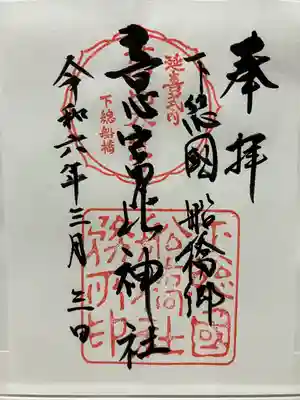 奉拝
下總國船橋郷
延喜式内
意富比神社
下總船橋
令和六年三月三日